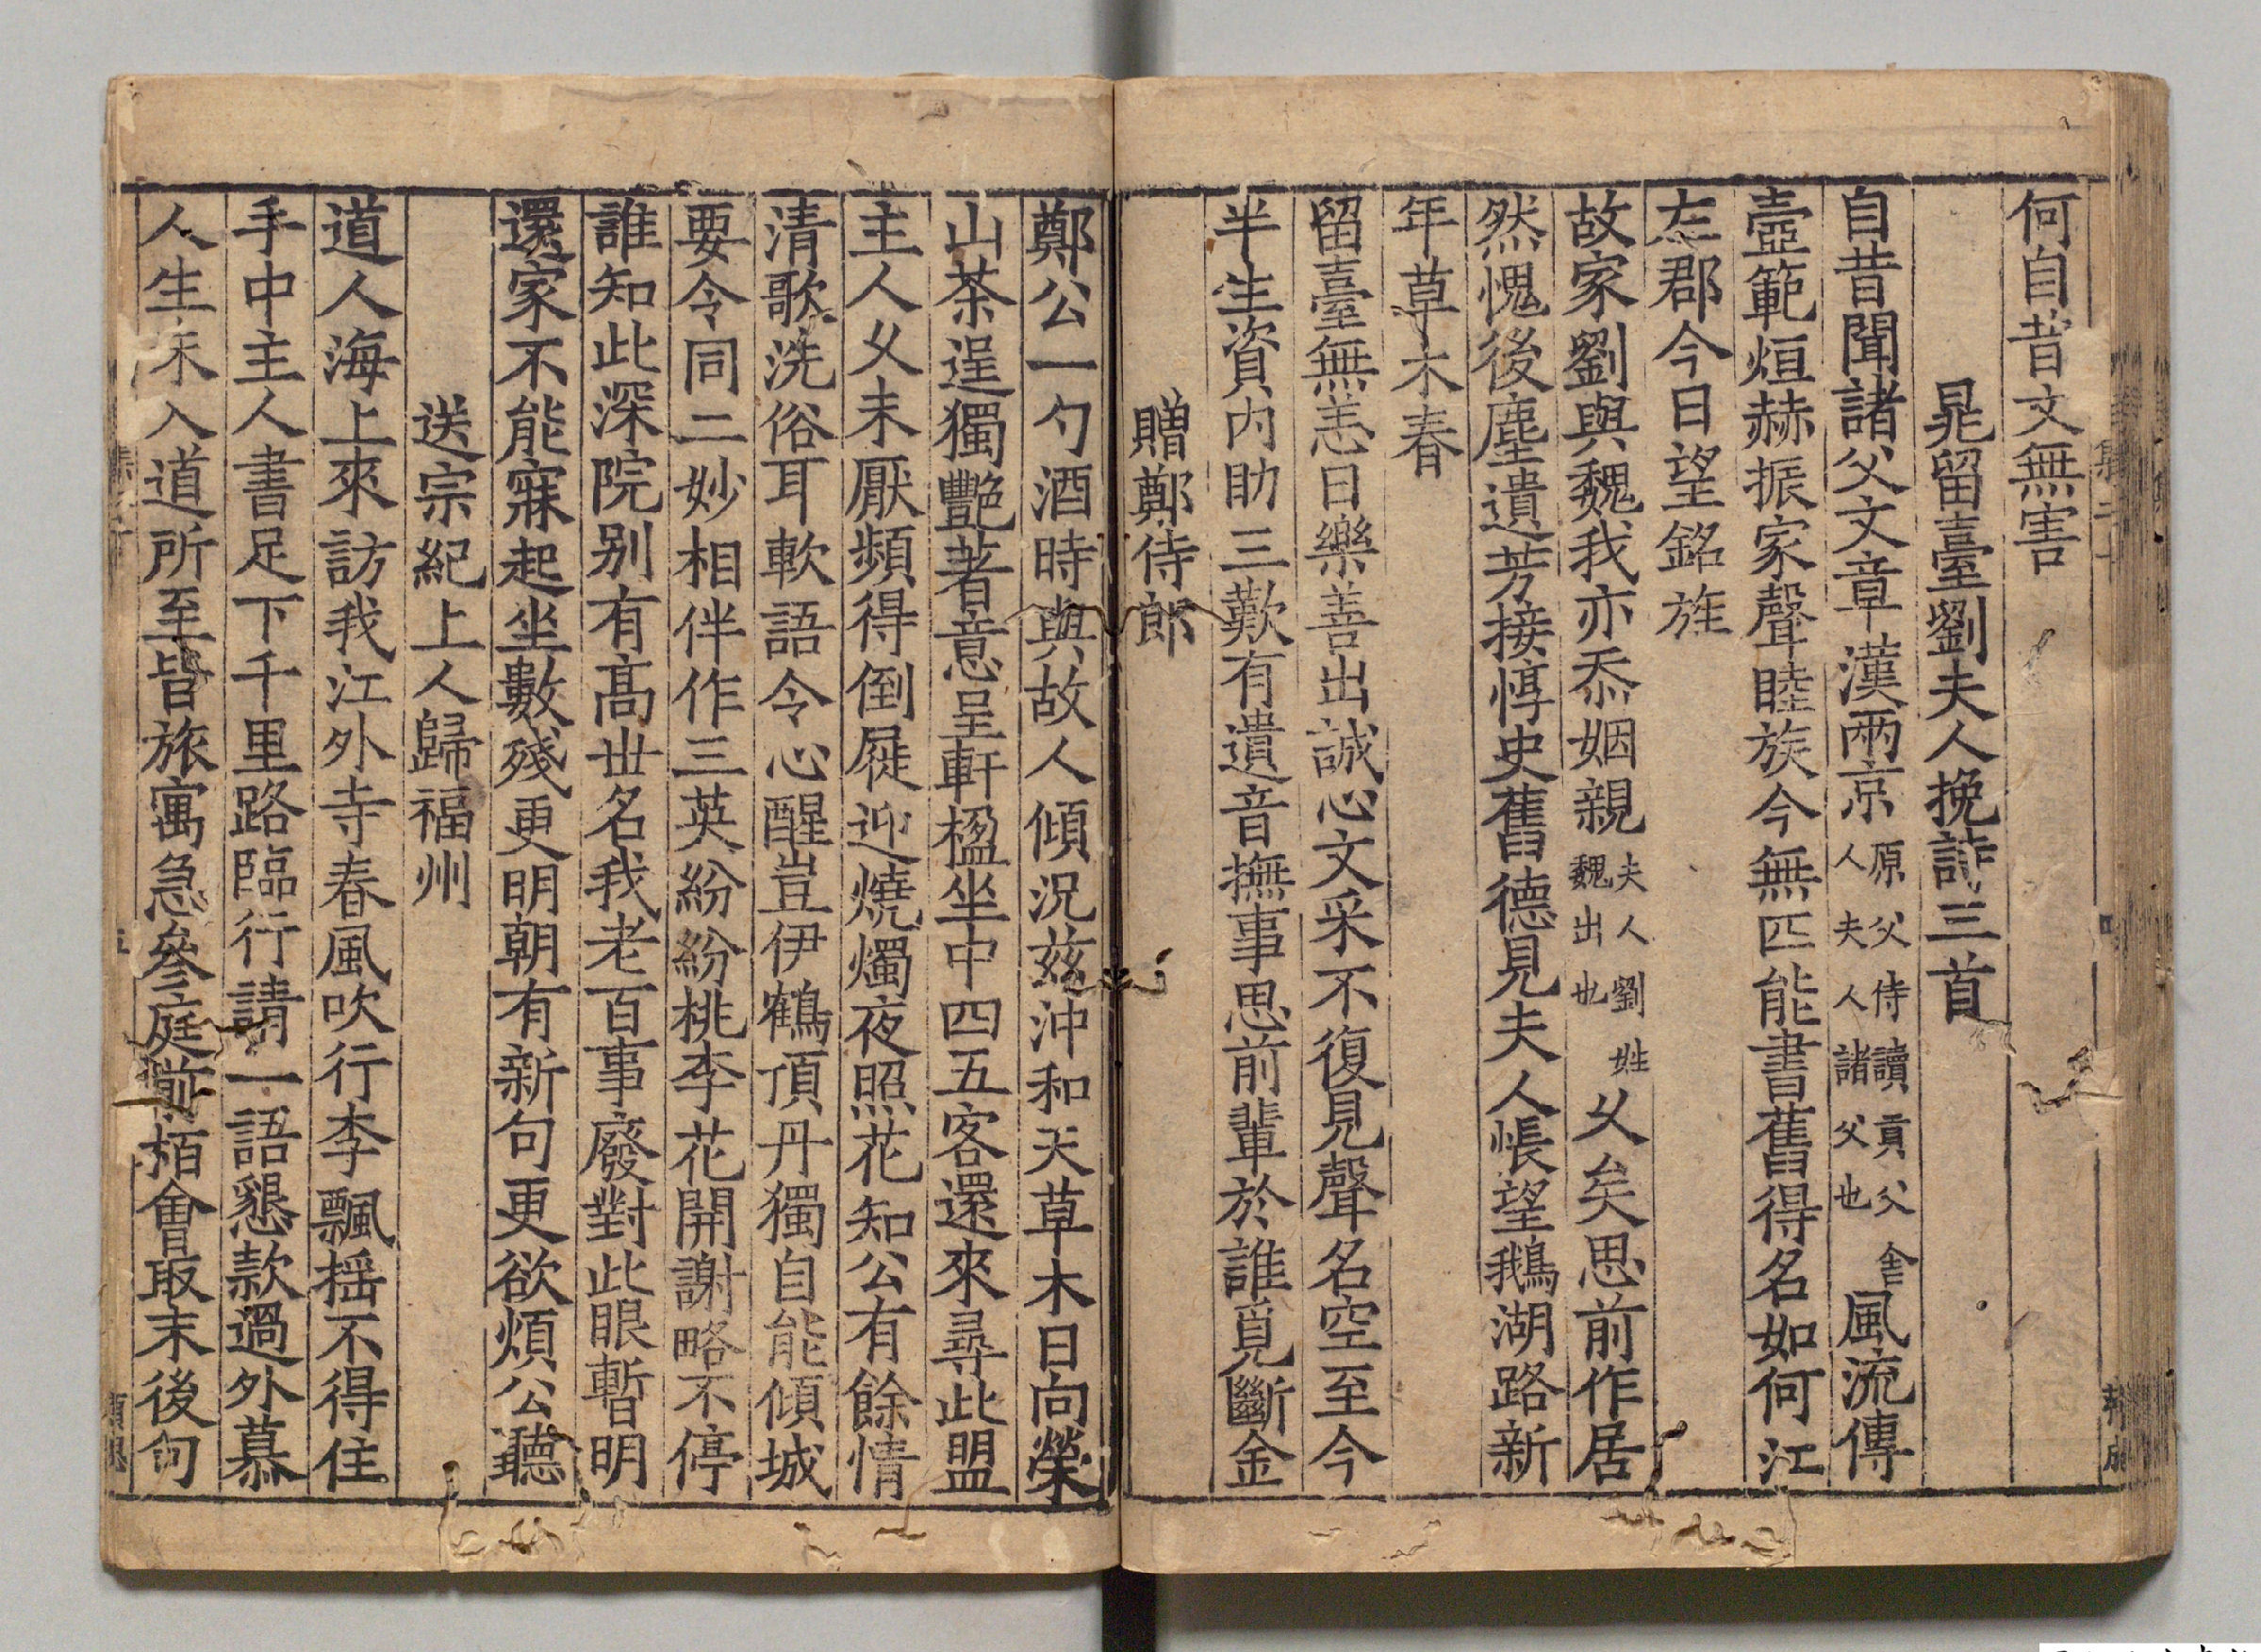 何自昔文無害
晁留臺劉夫人挽詩三首
自昔聞諸父文章漢兩京原父侍讀貢父舍人夫人諸父也風流傳
壼範烜赫振家聲睦族今無匹能書舊得名如何江
左郡今日望銘旌
故家劉與魏我亦忝姻親夫人劉姓魏出也乆矣思前作居
然愧後塵遺芳接惇史舊德見夫人悵望鵝湖路新
年草木春
留臺無恙日樂善出誠心文采不復見聲名空至今
半生資内助三歎有遺音撫事思前輩於誰覓斷金
贈鄭侍郎
鄭公一勺酒時與故人傾況茲沖和天草木日向榮
山茶逞獨艷著意呈軒楹坐中四五客還來尋此盟
主人乆未厭頻得倒屣迎燒燭夜照花知公有餘情
清歌洗俗耳軟語令心醒豈伊鶴頂丹獨自能傾城
要令同二妙相伴作三英紛紛桃李花開謝略不停
誰知此深院别有高世名我老百事廢對此眼暫明
還家不能寐起坐數殘更明朝有新句更欲煩公聽
送宗紀上人歸福州
道人海上來訪我江外寺春風吹行李飄揺不得住
手中主人書足下千里路臨行請一語懇款過外慕
人生未入道所至皆旅寓急參庭前栢會取末後句